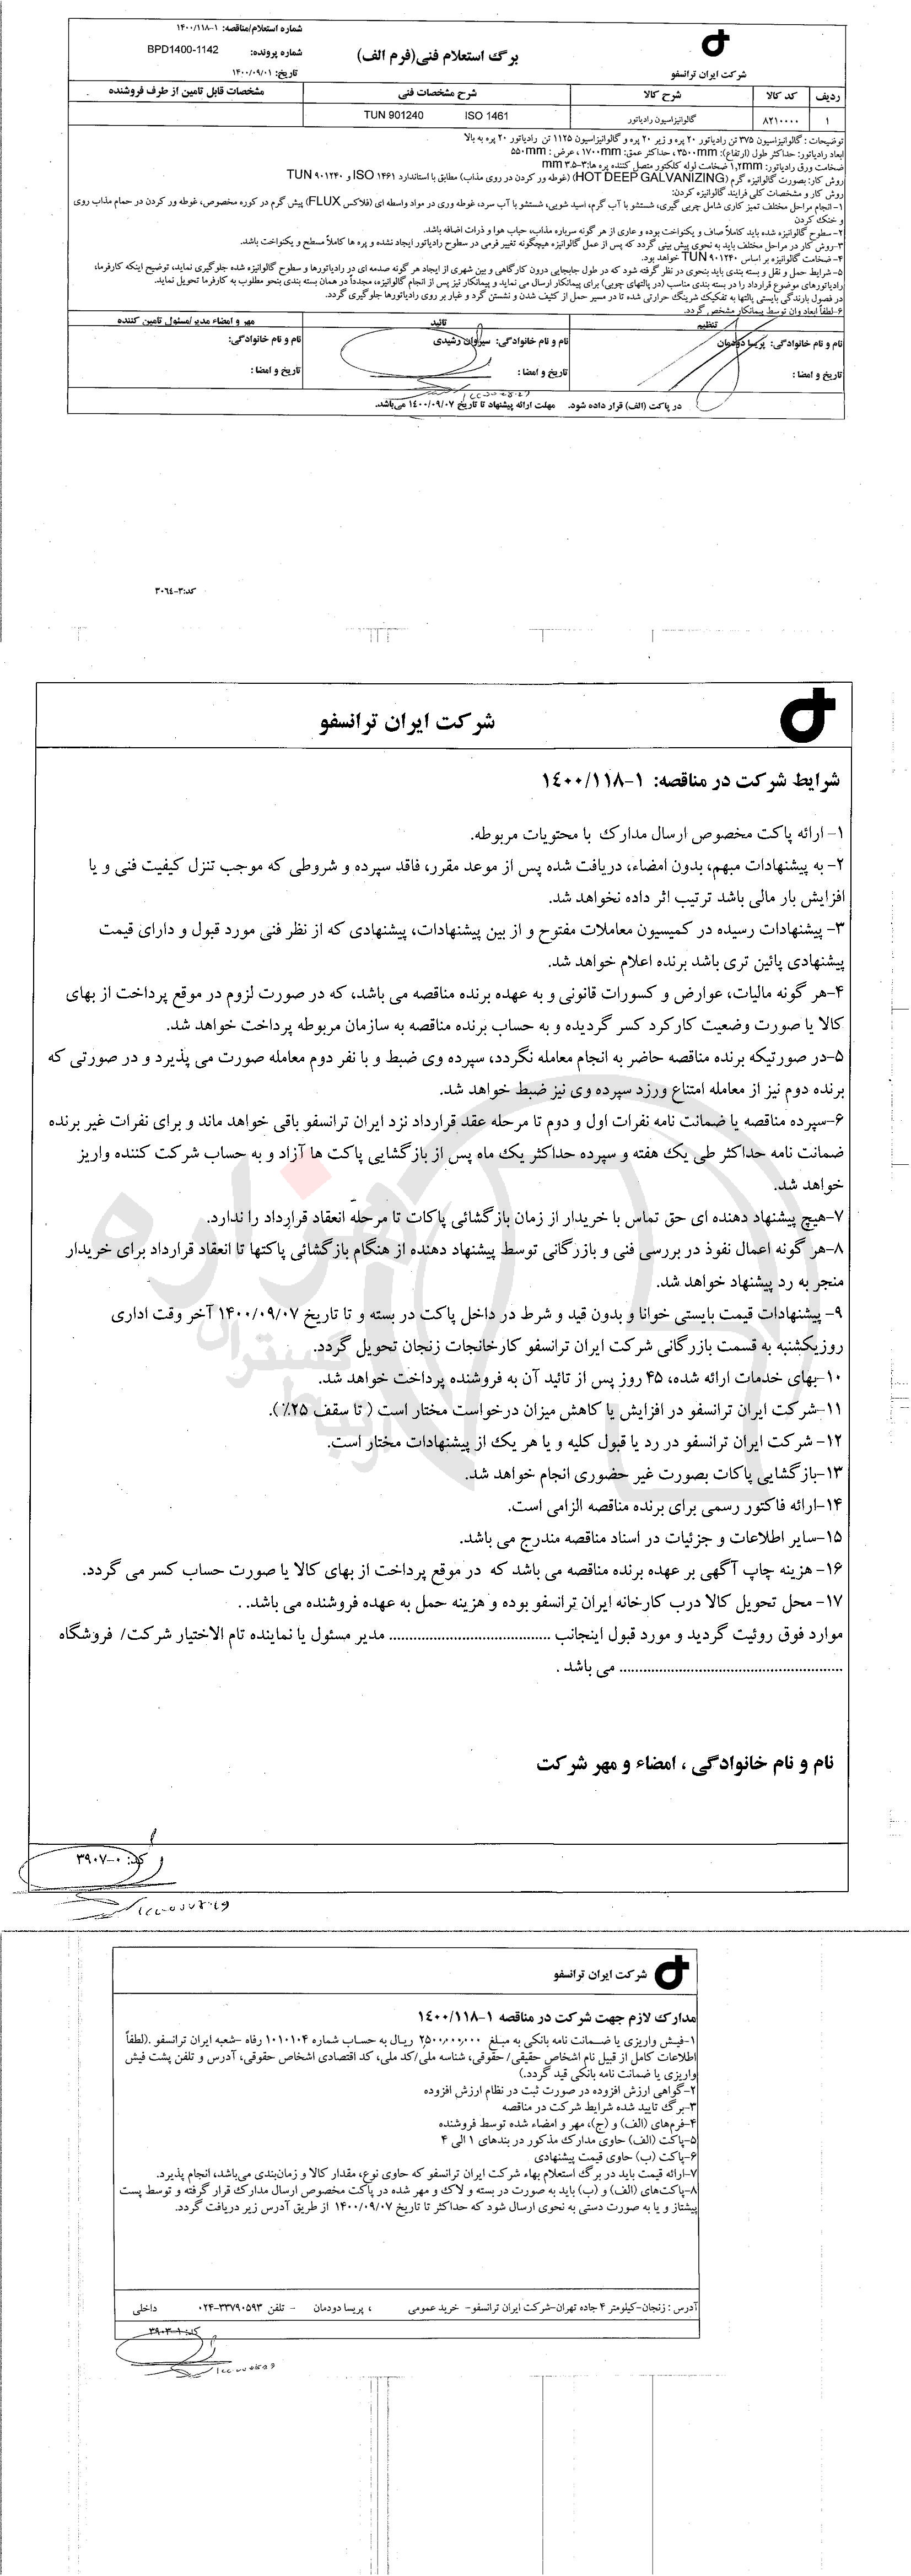 شماره استعلام/مناقصه: ۱-۱۴۰۰/۱۱۸
برگ استعلام فنی(فرم الف)
شماره پرونده: BPD1400-1142
شرکت ایران ترانسفو
تاریخ: ۱۴۰۰/۰۹/۰۱
ردیف کد کالا شرح کالا شرح مشخصات فنی مشخصات قابل تامین از طرف فروشنده
۱ ۸۲۱۰۰۰۰ گالوانیزاسیون رادیاتور ISO 1461 TUN 901240
توضیحات : گالوانیزاسیون ۳۷۵ تن رادیاتور ۲۰ پره و زیر ۲۰ پره و گالوانیزاسیون ۱۱۲۵ تن رادیاتور ۲۰ پره به بالا
ابعاد رادیاتور: حداکثر طول (ارتفاع): ۳۵۰۰mm ، حداکثر عمق: ۱۷۰۰mm ، عرض : ۵۵۰mm
ضخامت ورق رادیاتور: ۱,۲mm ضخامت لوله کلکتور متصل کننده پره ها: ۳-۳.۵ mm
روش کار: بصورت گالوانیزه گرم (HOT DEEP GALVANIZING) (غوطه ور کردن در روی مذاب) مطابق با استاندارد ISO ۱۴۶۱ و TUN ۹۰۱۲۴۰
روش کار و مشخصات کلی فرایند گالوانیزه کردن:
۱- انجام مراحل مختلف تمیز کاری شامل چربی گیری، شستشو با آب گرم، اسید شویی، شستشو با آب سرد، غوطه وری در مواد واسطه ای (فلاکس FLUX) پیش گرم در کوره مخصوص، غوطه ور کردن در حمام مذاب روی
و خنک کردن
۲- سطوح گالوانیزه شده باید کاملاً صاف و یکنواخت بوده و عاری از هر گونه سرباره مذاب، حباب هوا و ذرات اضافه باشد.
۳-روش کار در مراحل مختلف باید به نحوی پیش بینی گردد که پس از عمل گالوانیزه هیچگونه تغییر فرمی در سطوح رادیاتور ایجاد نشده و پره ها کاملاً مسطح و یکنواخت باشد.
۴- ضخامت گالوانیزه بر اساس TUN ۹۰۱۲۴۰ خواهد بود.
۵- شرایط حمل و نقل و بسته بندی باید بنحوی در نظر گرفته شود که در طول جابجایی درون کارگاهی و بین شهری از ایجاد هر گونه صدمه ای در رادیاتورها و سطوح گالوانیزه شده جلوگیری نماید، توضیح اینکه کارفرما،
رادیاتورهای موضوع قرارداد را در بسته بندی مناسب (در پالتهای چوبی) برای پیمانکار ارسال می نماید و پیمانکار نیز پس از انجام گالوانیزه، مجدداً در همان بسته بندی بنحو مطلوب به کارفرما تحویل نماید.
در فصول بارندگی بایستی پالتها به تفکیک شرینگ حرارتی شده تا در مسیر حمل از کثیف شدن و نشستن گرد و غبار بر روی رادیاتورها جلوگیری گردد.
۶-لطفاً ابعاد وان توسط پیمانکار مشخص گردد.
تنظیم تائید مهر و امضاء مدیر/مسئول تامین کننده
نام و نام خانوادگی: پریسا دودمان نام و نام خانوادگی: سیروان رشیدی نام و نام خانوادگی:
تاریخ و امضا : تاریخ و امضا : تاریخ و امضا :
در پاکت (الف) قرار داده شود. مهلت ارائه پیشنهاد تا تاریخ ۱۴۰۰/۰۹/۰۷ می‌باشد.
کد:۳-۳۰۶۴
شرکت ایران ترانسفو
شرایط شرکت در مناقصه: ۱-۱۴۰۰/۱۱۸
۱- ارائه پاکت مخصوص ارسال مدارک با محتویات مربوطه.
۲- به پیشنهادات مبهم، بدون امضاء، دریافت شده پس از موعد مقرر، فاقد سپرده و شروطی که موجب تنزل کیفیت فنی و یا
افزایش بار مالی باشد ترتیب اثر داده نخواهد شد.
۳- پیشنهادات رسیده در کمیسیون معاملات مفتوح و از بین پیشنهادات، پیشنهادی که از نظر فنی مورد قبول و دارای قیمت
پیشنهادی پائین تری باشد برنده اعلام خواهد شد.
۴-هر گونه مالیات، عوارض و کسورات قانونی و به عهده برنده مناقصه می باشد، که در صورت لزوم در موقع پرداخت از بهای
کالا یا صورت وضعیت کارکرد کسر گردیده و به حساب برنده مناقصه به سازمان مربوطه پرداخت خواهد شد.
۵-در صورتیکه برنده مناقصه حاضر به انجام معامله نگردد، سپرده وی ضبط و با نفر دوم معامله صورت می پذیرد و در صورتی که
برنده دوم نیز از معامله امتناع ورزد سپرده وی نیز ضبط خواهد شد.
۶-سپرده مناقصه یا ضمانت نامه نفرات اول و دوم تا مرحله عقد قرارداد نزد ایران ترانسفو باقی خواهد ماند و برای نفرات غیر برنده
ضمانت نامه حداکثر طی یک هفته و سپرده حداکثر یک ماه پس از بازگشایی پاکت ها آزاد و به حساب شرکت کننده واریز
خواهد شد.
۷-هیچ پیشنهاد دهنده ای حق تماس با خریدار از زمان بازگشائی پاکات تا مرحله انعقاد قرارداد را ندارد.
۸-هر گونه اعمال نفوذ در بررسی فنی و بازرگانی توسط پیشنهاد دهنده از هنگام بازگشائی پاکتها تا انعقاد قرارداد برای خریدار
منجر به رد پیشنهاد خواهد شد.
۹- پیشنهادات قیمت بایستی خوانا و بدون قید و شرط در داخل پاکت در بسته و تا تاریخ ۱۴۰۰/۰۹/۰۷ آخر وقت اداری
روزیکشنبه به قسمت بازرگانی شرکت ایران ترانسفو کارخانجات زنجان تحویل گردد.
۱۰-بهای خدمات ارائه شده، ۴۵ روز پس از تائید آن به فروشنده پرداخت خواهد شد.
۱۱-شرکت ایران ترانسفو در افزایش یا کاهش میزان درخواست مختار است ( تا سقف ۲۵٪ ).
۱۲- شرکت ایران ترانسفو در رد یا قبول کلیه و یا هر یک از پیشنهادات مختار است.
۱۳-بازگشایی پاکات بصورت غیر حضوری انجام خواهد شد.
۱۴-ارائه فاکتور رسمی برای برنده مناقصه الزامی است.
۱۵-سایر اطلاعات و جزئیات در اسناد مناقصه مندرج می باشد.
۱۶- هزینه چاپ آگهی بر عهده برنده مناقصه می باشد که در موقع پرداخت از بهای کالا یا صورت حساب کسر می گردد.
۱۷- محل تحویل کالا درب کارخانه ایران ترانسفو بوده و هزینه حمل به عهده فروشنده می باشد. .
موارد فوق روئیت گردید و مورد قبول اینجانب ........................................ مدیر مسئول یا نماینده تام الاختیار شرکت/ فروشگاه
........................................................ می باشد .
نام و نام خانوادگی ، امضاء و مهر شرکت
کد: ۰-۳۹۰۷
شرکت ایران ترانسفو
مدارک لازم جهت شرکت در مناقصه ۱-۱۴۰۰/۱۱۸
۱-فیش واریزی یا ضمانت نامه بانکی به مبلغ ۲۵۰۰,۰۰۰,۰۰۰ ریال به حساب شماره ۱۰۱۰۱۰۴ رفاه -شعبه ایران ترانسفو .(لطفاً
اطلاعات کامل از قبیل نام اشخاص حقیقی/ حقوقی، شناسه ملی/کد ملی، کد اقتصادی اشخاص حقوقی، آدرس و تلفن پشت فیش
واریزی یا ضمانت نامه بانکی قید گردد.)
۲-گواهی ارزش افزوده در صورت ثبت در نظام ارزش افزوده
۳-برگ تایید شده شرایط شرکت در مناقصه
۴-فرم‌های (الف) و (ج)، مهر و امضاء شده توسط فروشنده
۵-پاکت (الف) حاوی مدارک مذکور در بندهای ۱ الی ۴
۶-پاکت (ب) حاوی قیمت پیشنهادی
۷-ارائه قیمت باید در برگ استعلام بهاء شرکت ایران ترانسفو که حاوی نوع، مقدار کالا و زمان‌بندی می‌باشد، انجام پذیرد.
۸-پاکت‌های (الف) و (ب) باید به صورت در بسته و لاک و مهر شده در پاکت مخصوص ارسال مدارک قرار گرفته و توسط پست
پیشتاز و یا به صورت دستی به نحوی ارسال شود که حداکثر تا تاریخ ۱۴۰۰/۰۹/۰۷ از طریق آدرس زیر دریافت گردد.
آدرس : زنجان-کیلومتر ۴ جاده تهران-شرکت ایران ترانسفو- خرید عمومی ، پریسا دودمان - تلفن ۳۳۷۹۰۵۹۳-۰۲۴ داخلی
کد: ۱-۳۹۰۳